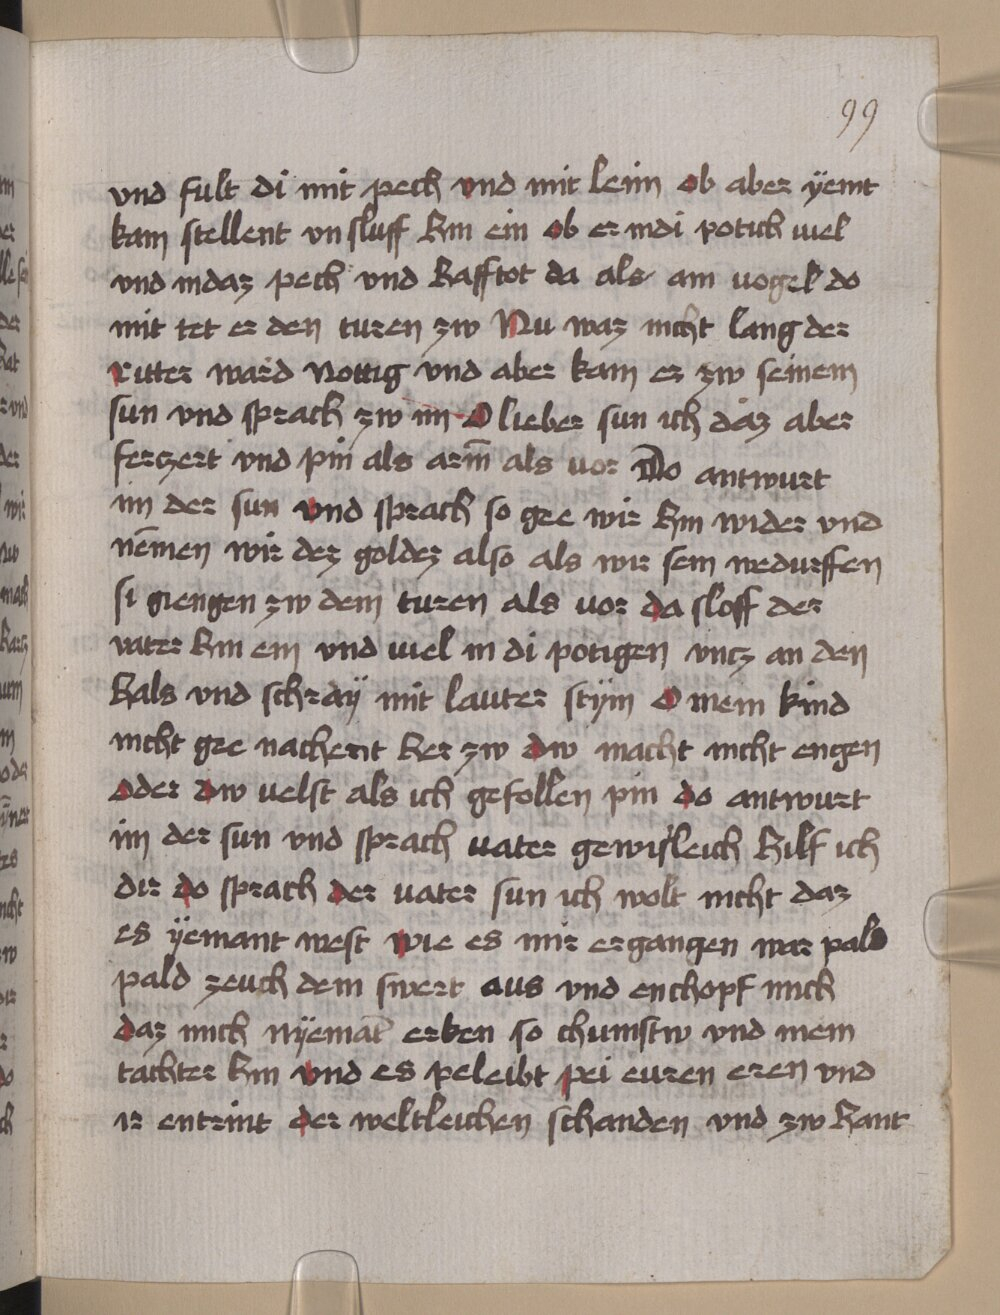 99
vnd fult di mit pech vnd mit leim ob aber yemt
kam stellent vn sluff hin ein ob er in di potich viel
vnd in daz pech vnd hafftot da als ain vogel do
mit tet er den turen zw Nu waz nicht lang der
ritter ward nottig vnd aber kam er zw seinem
sun vnd sprach zw im O lieber sun ich daz aber
ferczert vnd pin als arm̄ als vor Do antwurt
im der sun vnd sprach so gee wir hin wider vnd
nēmen wir dez goldez also als wir sein wedurffen
si giengen zw dem turen als vor da sloff der
vater hin ein vnd viel in di potigen vncz an den
hals vnd schray mit lauter stym O mein kind
nicht gee nachent her zw dw macht nicht engen
oder dw velst als ich gefollen pin do antwurt
im der sun vnd sprach vater gewisleich hilf ich
dir do sprach der vater sun ich wolt nicht daz
es yemant west wie es mir ergangen war pald
pald zeuch dein swert aus vnd enthopf mich
daz mich nyemāt erken so chumstw vnd mein
tachter hin vnd es peleibt pei euren eren vnd
ir entrint der weltleichen schanden vnd zw hant